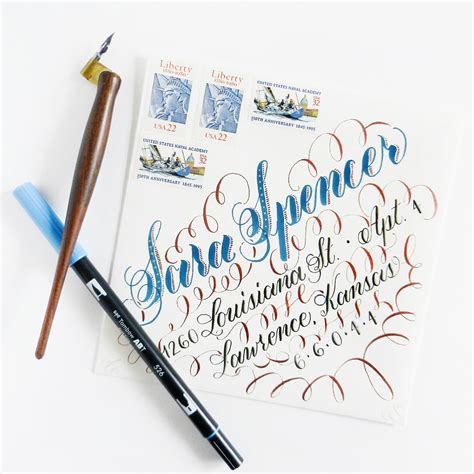 Liberty
1886-1986
USA 22
Liberty
1886-1986
USA 22
UNITED STATES NAVAL ACADEMY
USA
32
150TH ANNIVERSARY 1845-1995
UNITED STATES NAVAL ACADEMY
USA
32
150TH ANNIVERSARY 1845-1995
Sara Spencer
1260 Louisiana St. · Apt. 1
Lawrence, Kansas
6·6·0·4·4
Tombow ABT
526